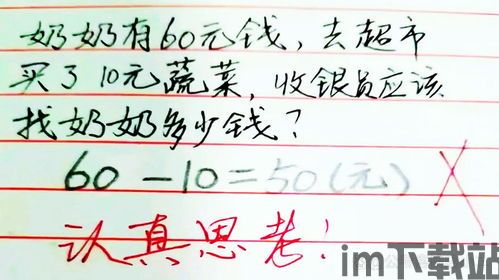 奶奶有60元钱，去超市
买了10元蔬菜，收银员应该
找奶奶多少钱？
60-10=50(元) ×
认真思考！
im下载站